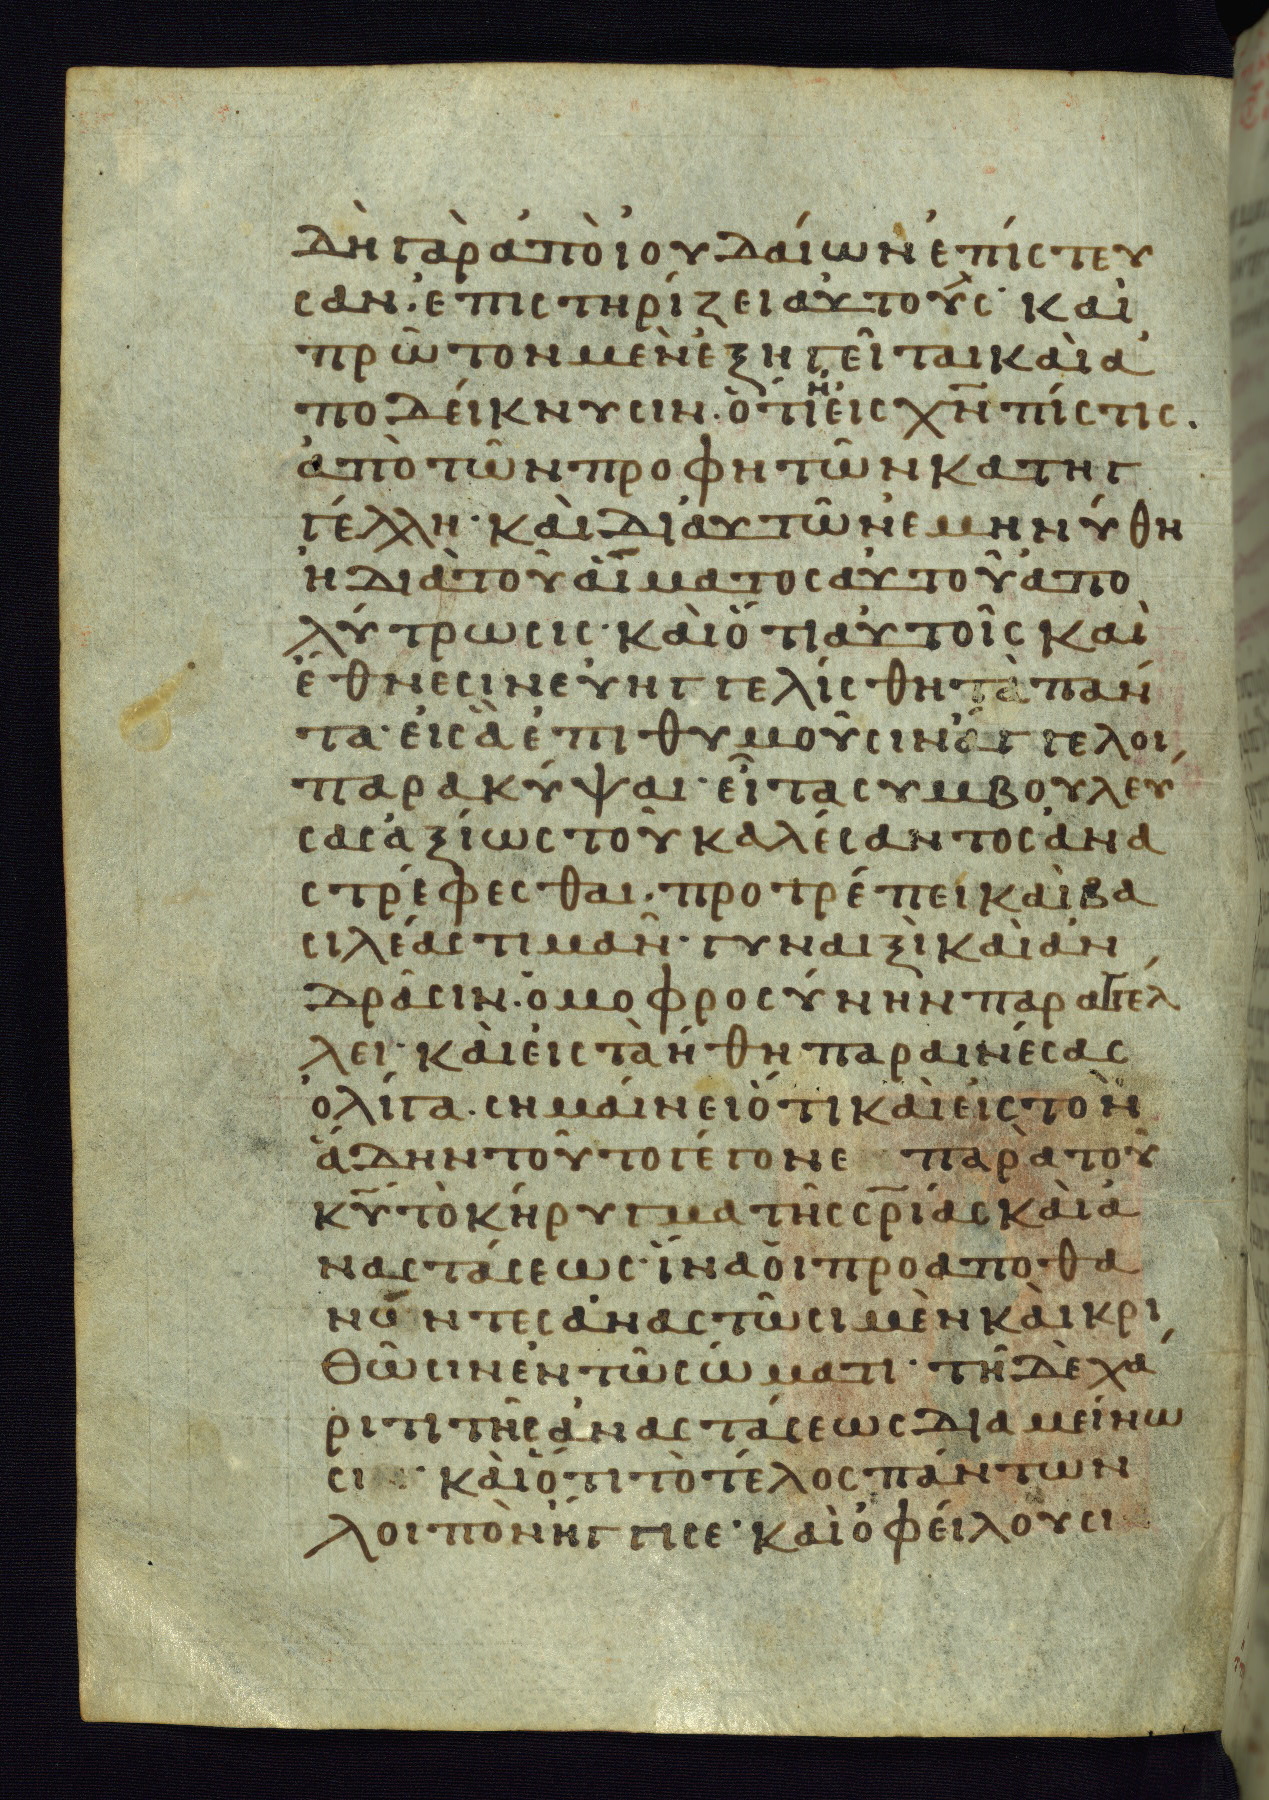 δὴ γὰρ ἀπὸ ἰουδαίων ἐπίστευ
σαν· ἐπιστηρίζει αὐτοὺς· καὶ
πρῶτον μὲν ἐξηγεῖται καὶ ἀ
ποδείκνυσιν· ὅτι ἡ εἰς χ̅ν̅ πίστις.
ἀπὸ τῶν προφητῶν κατηγ
γέλλη· καὶ δι αὐτῶν ἐμηνύθη
ἡ διὰ τοῦ αἵματος αὐτοῦ ἀπο
λύτρωσις· καὶ ὅτι αὐτοῖς καὶ
ἔθνεσιν εὐηγγελίσθη τὰ πάν
τα· εἰς ἃ ἐπιθυμοῦσιν ἄγγελοι
παρακύψαι· εἶτα συμβουλεύ
σας ἀξίως τοῦ καλέσαντος ἀνα
στρέφεσθαι· προτρέπει καὶ βα
σιλέας τιμᾶν· γυναιξὶ καὶ ἀν
δράσιν· ὁμοφροσύνην παραγγέλ
λει· καὶ εἰς τὰ ἤθη παραινέσας
ὀλίγα· σημαίνει ὅτι καὶ εἰς τὸν
ἅδην τοῦτο γέγονε παρὰ τοῦ
κ̅υ̅ τὸ κήρυγμα τῆς σ̅ρ̅ίας καὶ ἀ
ναστάσεως· ἵνα οἱ προαποθα
νόντες ἀναστῶσι μὲν καὶ κρι
θῶσιν ἐν τῶ σώματι· τῆ δὲ χά
ριτι τῆς ἀναστάσεως διαμείνω
σι· καὶ ὅτι τὸ τέλος πάντων
λοιπὸν ἤγγισε· καὶ ὀφείλουσι